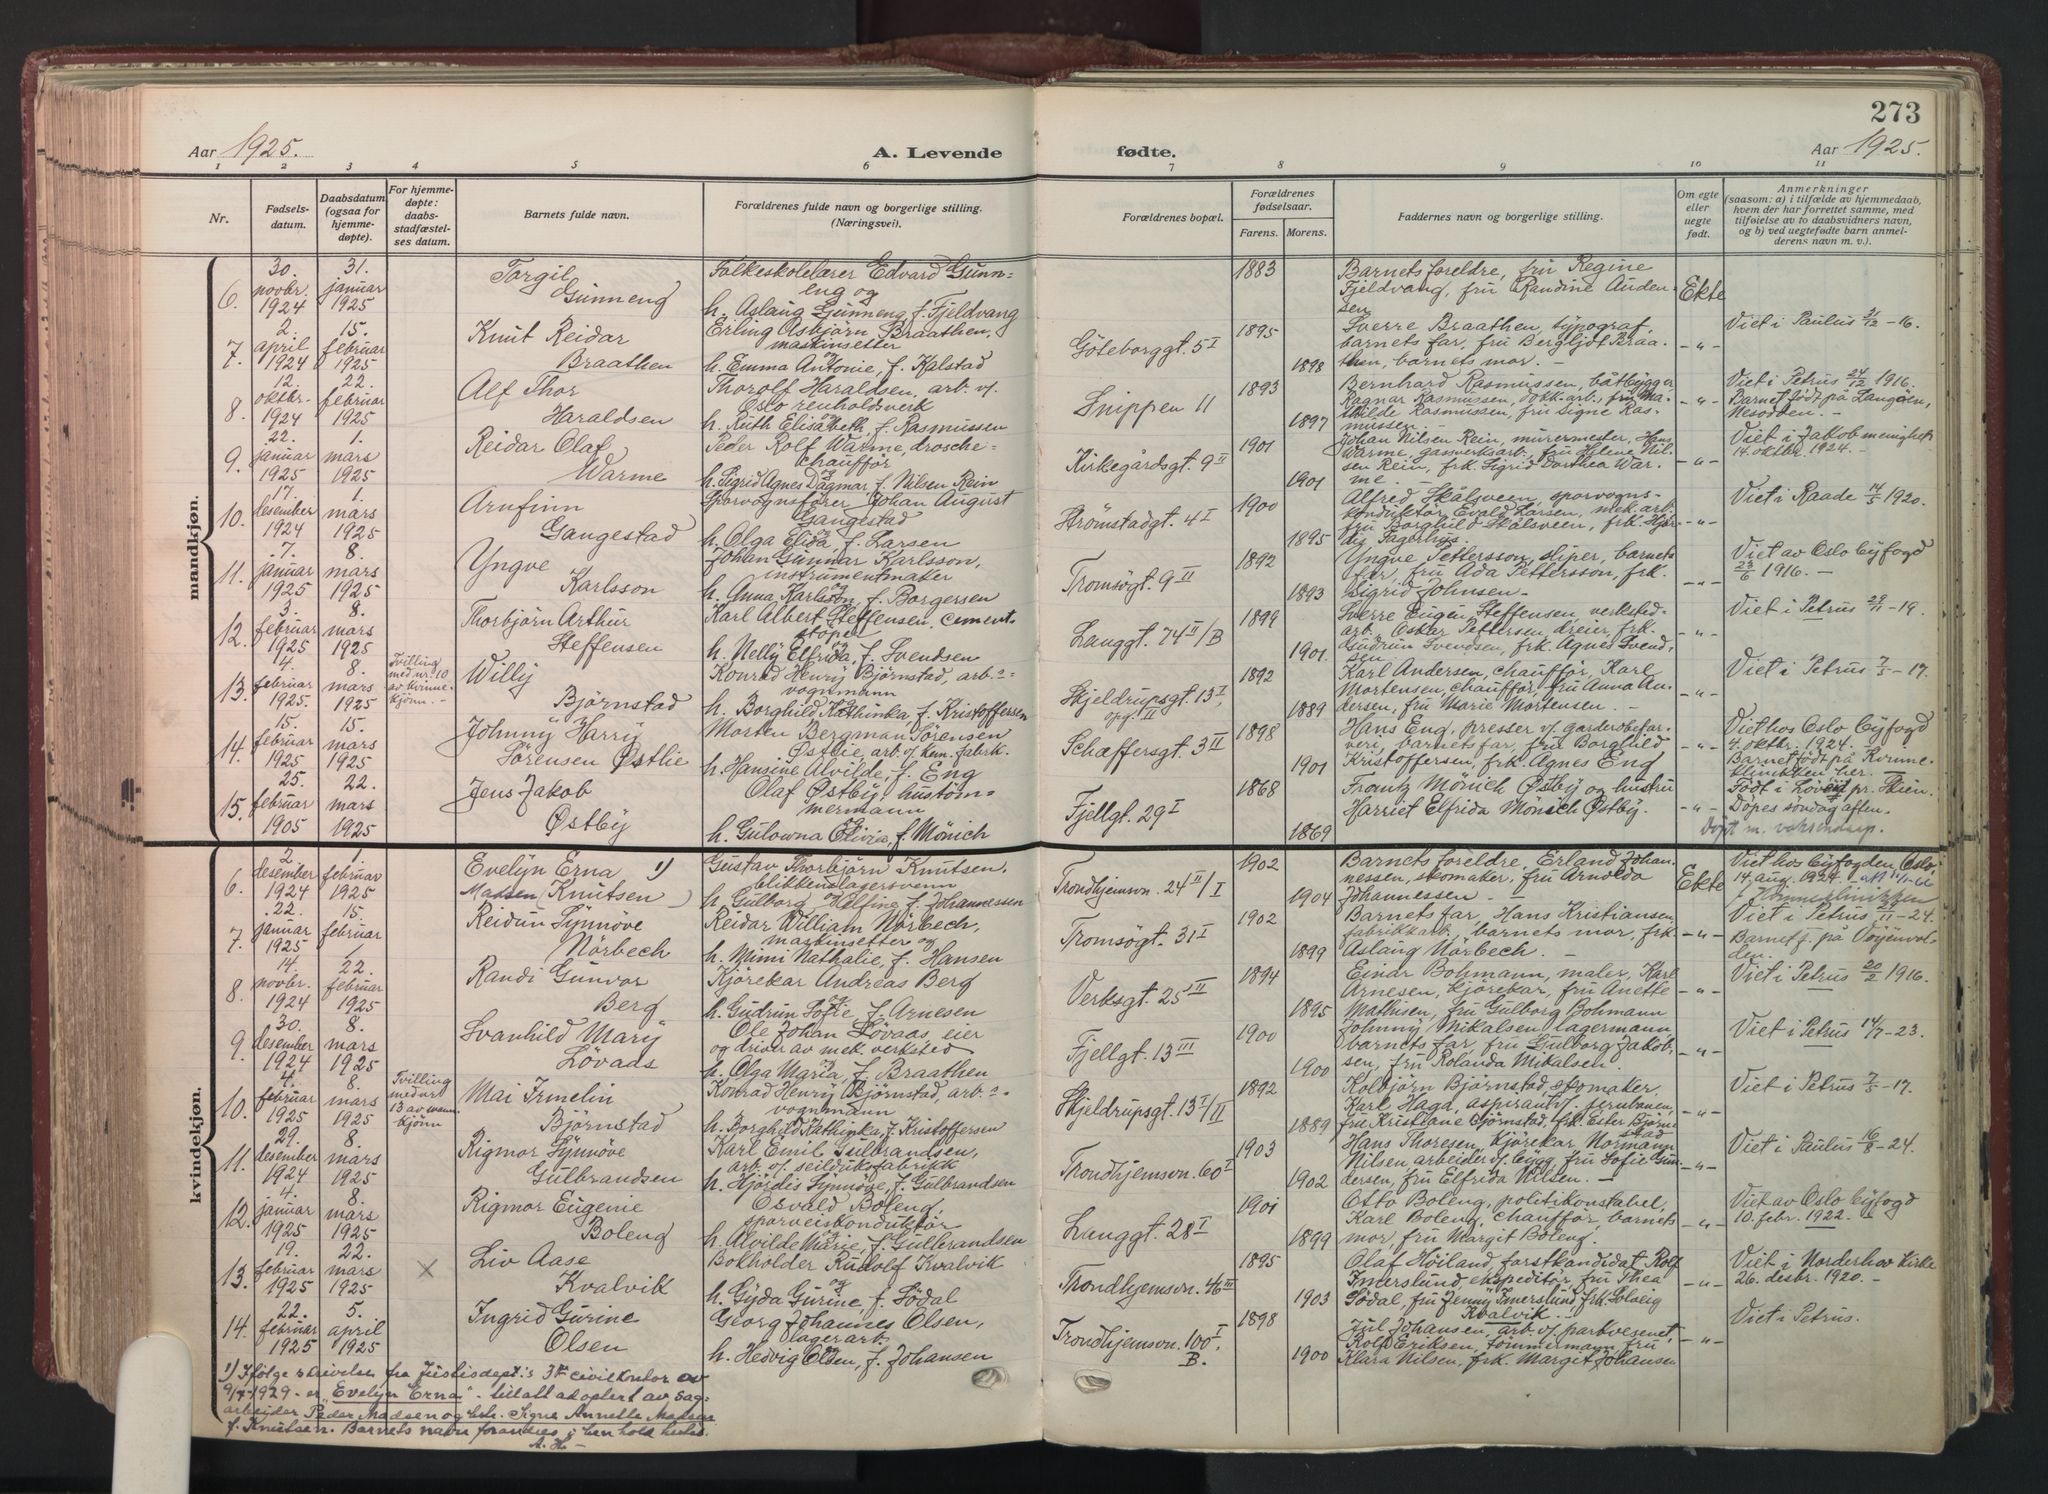 273
Aar 1925.
A. Levende
fødte.
Aar 1925.
1 2 3 4 5 6 7 8 9 10 11
Nr.
Fødsels-
datum.
Daabsdatum
(ogsaa for
hjemme-
døpte).
For hjemme-
døpte:
daabs-
stadfæstel-
ses datum.
Barnets fulde navn.
Forældrenes fulde navn og borgerlige stilling.
(Næringsvei).
Forældrenes bopæl.
Forældrenes
fødselsaar.
Farens. Morens.
Faddernes navn og borgerlige stilling.
Om egte
eller
uegte
født.
Anmerkninger
(saasom: a) i tilfælde av hjemmedaab,
hvem der har forrettet samme, med
tilføielse av to daabsvidners navn,
og b) ved uegtefødte barn anmel-
derens navn m. v.).
mandkjøn.
6. 30. novbr. 1924 31. januar 1925
Torgil
Gunneng
Folkeskolelærer Edvard Gunn-
eng og
h. Aslaug Gunneng f. Fjeldvang
1883
Barnets foreldre, fru Regine
Fjeldvang, fru Randine Auden-
sen
Ekte
7. 2. april 1924 15. februar 1925
Knut Reidar
Braathen
Erling Asbjørn Braathen,
maskinsetter og
h. Emma Antonie, f. Kalstad
Göteborggt. 5 I
1895 1898
Sverre Braathen, typograf,
barnets far, fru Bergljot Braa-
then, barnets mor. -
-"-
Viet i Paulus 31/12 -16.
8. 12. oktbr. 1924 22. februar 1925
Alf Thor
Haraldsen
Thorolf Haraldsen, arb. v/
Oslo renholdsverk og
h. Ruth Elisabeth, f. Rasmussen
Snippen 11
1893 1897
Bernhard Rasmussen, båtbygger
Ragnar Rasmussen, dokkarb., fru Ma-
thilde Rasmussen, fru Signe Ras-
mussen.
-"-
Viet i Petrus 24/12 1916.
Barnet født på Langøen,
Nesodden. -
9. 22. januar 1925 1. mars 1925
Reidar Olaf
Warme
Peder Rolf Warme, drosche-
chauffør og
h. Sigrid Agnes Dagmar f. Nilsen Rein
Kirkegårdsgt. 9 II
1901 1901
Johan Nilsen Rein, murermester, Hans
Warme, gassverksarb., fru Helene Nil-
sen Rein, frk. Sigrid Dorthea War-
me. -
-"-
Viet i Jakob menighet
14. oktbr. 1924. -
10. 17. desember 1924 1. mars 1925
Arnfinn
Gangestad
Sporvognsfører Johan August
Gangestad og
h. Olga Elida, f. Larsen
Strömstadgt. 4 I
1900 1895
Alfred Skålsveen, sporvogns-
konduktör, Evald Larsen, mek. arb.
fru Borghild Skålsveen, frk. Hjör-
dis Fagerhus.
-"-
Viet i Raade 14/5 1920.
11. 7. januar 1925 8. mars 1925
Yngve
Karlsson
Johan Gunnar Karlsson,
instrumentmaker og
h. Anna Karlsson f. Borgersen
Tromsögt. 9 II
1892 1893
Yngve Pettersson, sliper, barnets
far, fru Ada Pettersson, frk.
Sigrid Johnsen -
-"-
Viet av Oslo Byfogd
23/6 1916. -
12. 3. februar 1925 8. mars 1925
Thorbjörn Arthur
Steffensen
Karl Albert Steffensen, cement-
støper og
h. Nelly Elfrida, f. Svendsen
Langgt. 74 II/B
1899 1901.
Sverre Eugen Steffensen, verksted-
arb., Oskar Pettersen, dreier, frk.
Gudrun Svendsen, frk. Agnes Svend-
sen
-"-
Viet i Petrus 29/11 -19.
13. 4. februar 1925. 8. mars 1925
Tvilling
med nr. 10
av kvinne-
kjønn. -
Willy
Björnstad
Konrad Henry Björnstad, arb.-
vognmann og
h. Borghild Kathinka, f. Kristoffersen
Skjeldrupsgt. 13 I,
opg. II
1892 1889
Karl Andersen, chauffør, Karl
Mortensen, chauffør, fru Anna An-
dersen, fru Marie Mortensen. -
-"-
Viet i Petrus 7/5 -17.
14. 15. februar 1925 15. mars 1925
Johnny Harry
Sörensen Østlie
Morten Bergman Sörensen
Østlie, arb. v/ kem. fabrk.
h. Hansine Alvilde, f. Eng
Schæffersgt. 3 II
1898 1901
Hans Eng, presser v/ garderobefar-
veri, barnets far, fru Borghild
Kristoffersen, frk. Agnes Eng
-"-
Viet hos Oslo Byfogd
4. oktbr. 1924. -
Barnet født på Kvinne-
klinikken her. -
15. 25. februar 1905 22. mars 1925
Jens Jakob
Østby
Olaf Østby, hustøm-
mermann og
h. Gulowna Olivia, f. Mönich
Fjellgt. 29 I
1868 1869
Frantz Mönich Østby og hustru
Harriet Elfrida Mönich Østby.
-"-
Født i Løveid pr. Skien.
Döpes söndag aften.
Døpt m. voksendåp.
kvindekjøn.
6. 2. desember 1924 1. februar 1925
Evelyn Erna 1)
Madsen (Knutsen)
Gustav Thorbjörn Knutsen,
blikkenslagersvenn
h. Gulborg Helfine, f. Johannessen
Trondhjemsvn. 24 II/I
1902 1904
Barnets foreldre, Erland Johan-
nessen, skomaker, fru Arnolda
Johannessen -
Ekte
Viet hos Byfogden, Oslo,
14. aug. 1924.
7. 22. januar 1925 15. februar
Reidun Synnöve
Nörbech
Reidar William Nörbech,
maskinsetter og
h. Mimi Nathalie, f. Hansen
Tromsögt. 31 I
1902 1899
Barnets far, Hans Kristiansen,
fabrikkarb., barnets mor, frk.
Aslaug Nörbech. -
-"-
Viet i Petrus 22/11 -24.
Barnet f. på Vøyenvol-
den.
8. 14. novbr. 1924 22. februar 1925
Randi Gunvor
Berg
Kjörekar Andreas Berg
og
h. Gudrun Sofie, f. Arnesen
Verksgt. 25 III
1894 1895
Einar Bohmann, maler, Karl
Arnesen, kjörekar, fru Anette
Mathisen, fru Gulborg Bohmann
-"-
Viet i Petrus 20/2 1916.
9. 30. desember 1924 8. mars 1925
Svanhild Mary
Lövaas
Ole Johan Lövaas, eier
og driver av mek. verksted
h. Olga Maria, f. Braathen
Fjellgt. 13 III
1900 1900
Johnny Mikalsen lagermann
barnets far, fru Gulborg Jakob-
sen, fru Rolanda Mikalsen.
-"-
Viet i Petrus 14/7 -23.
10. 4. februar 1925 8. mars 1925
Tvilling
med nr.
13 av mann-
kjønn
Mai Irmelin
Björnstad
Konrad Henry Björnstad, arb.-
vognmann
h. Borghild Kathinka, f. Kristoffersen
Skjeldrupsgt. 13 I/II
1892 1889
Kolbjörn Björnstad, skomaker,
Karl Haga, aspirant v. jernbanen,
fru Kristiane Björnstad, frk. Ester Björn-
stad
-"-
Viet i Petrus 7/5 -17.
11. 29. desember 1924 8. mars 1925
Rigmor Synnöve
Gulbrandsen
Karl Emil Gulbrandsen,
arb. v/ seilduksfabrikk
h. Hjördis Synnöve, f. Gulbrandsen
Trondhjemsvn. 60 I
1903 1902
Hans Thoresen, kjörekar, Normann
Nilsen arbeider v/ bygg, fru Sofie Gun-
dersen, fru Elfrida Nilsen. -
-"-
Viet i Paulus 16/8 -24.
12. 4. januar 1925 8. mars 1925
Rigmor Eugenie
Boleng
Osvald Boleng,
sporveiskonduktør og
h. Alvilde Marie, f. Gulbrandsen
Langgt. 28 I
1901 1899
Otto Boleng, politikonstabel,
Karl Boleng, chauffør, barnets
mor, fru Margit Boleng.
-"-
Viet av Oslo Byfogd
10. febr. 1922. -
13. 19. februar 1925 22. mars 1925
X
Liv Aase
Kvalvik
Bokholder Rudolf Kvalvik
og
h. Gyda Gurine, f. Södal
Trondhjemsvn. 46 III
1895 1903
Olaf Höiland, forstkandidat, Rolf
Imerslund ekspeditör, fru Thea
Södal, fru Jenny Imerslund, frk. Solveig
Kvalvik. -
-"-
Viet i Norderhov Kirke
26. desbr. 1920. -
14. 22. februar 1925 5. april 1925
Ingrid Gurine
Olsen
Georg Johannes Olsen,
lagerarb. og
h. Hedvig Olsen, f. Johansen
Trondhjemsvn. 100 I
B.
1898 1900
Jul Johansen, arb. v/ parkvesenet,
Rolf Eriksen, tømmermann, fru
Klara Nilsen, frk. Margit Johansen
-"-
Viet i Petrus.
1) Ifølge skrivelse fra Justisdept.'s 3dje civilkontor av
9/7-1929 - er "Evelyn Erna" - tillatt adoptert av sag-
arbeider Peder Madsen og hstr. Signe Annette Madsen
f. Knutsen. Barnets navn forandres i henhold hertil.
A. H. -